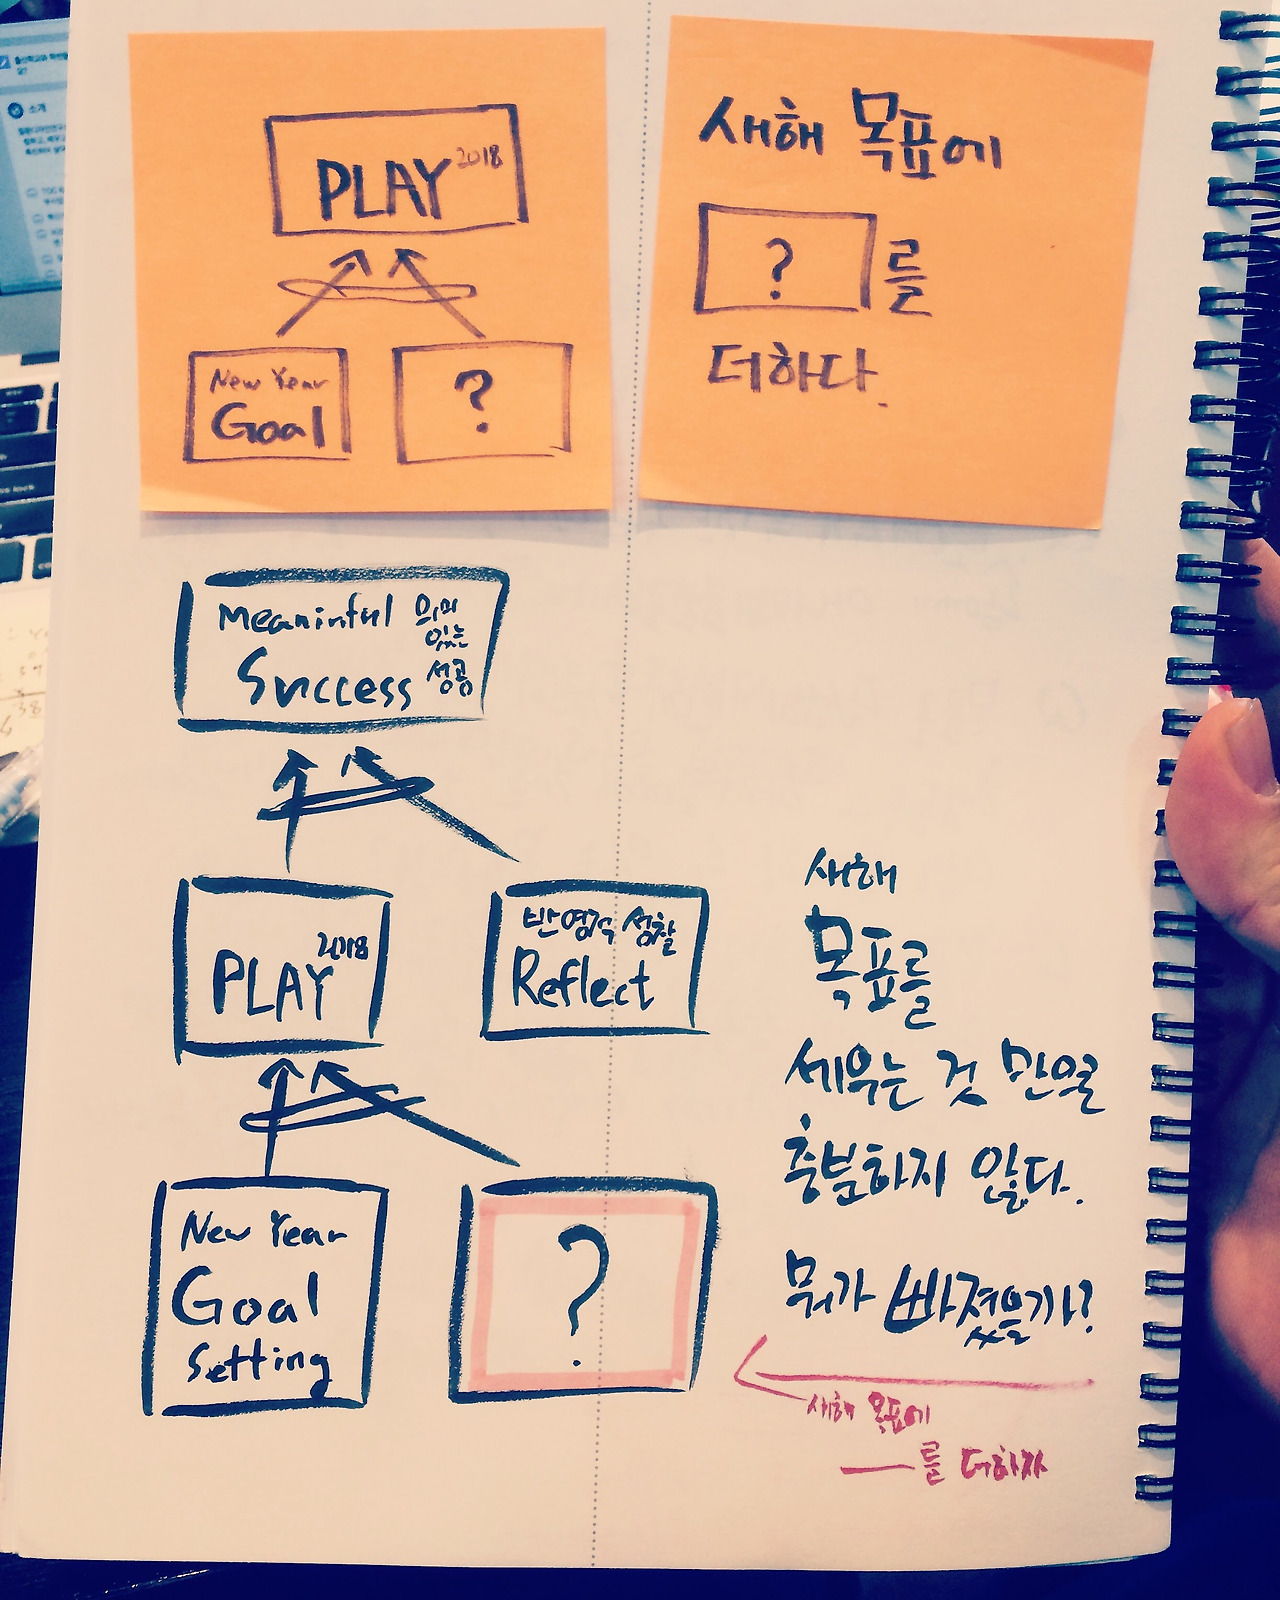 PLAY 2018
New Year
Goal
?
새해 목표에
? 를
더하다.
Meaninful 의미
있는
Success 성공
PLAY 2018
반영적 성찰
Reflect
New Year
Goal
Setting
?
새해
목표를
세우는 것 만열
충분하지 않다.
뭐가 빠졌을까?
새해 목표에
를 더하자
소개